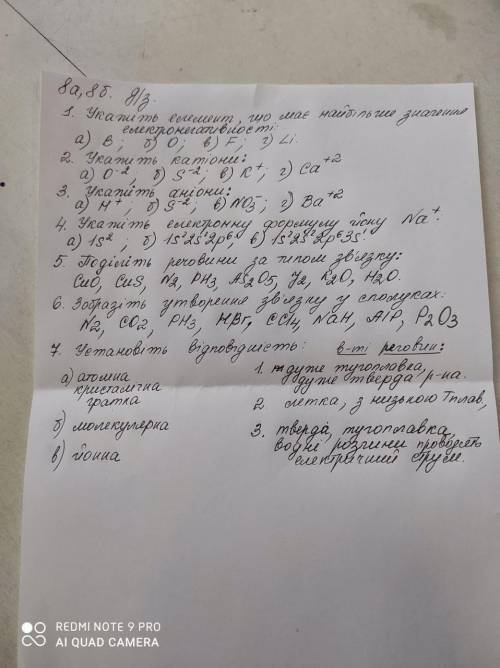 8а, 8б. д/з.
1. Укажіть елемент, що має найбільше значення
електронегативності:
а) B; б) O; в) F; г) Li.
2. Укажіть катіони:
а) O⁻²; б) S⁻²; в) K⁺; г) Ca⁺²
3. Укажіть аніони:
а) H⁺; б) S⁻²; в) NO₃⁻; г) Ba⁺²
4. Укажіть електронну формулу йону Na⁺:
а) 1s²; б) 1s²2s²2p⁶; в) 1s²2s²2p⁶3s¹.
5. Поділіть речовини за типом зв'язку:
CuO, CuS, N₂, PH₃, As₂O₅, J₂, K₂O, H₂O.
6. Зобразіть утворення зв'язку у сполуках:
N₂, CO₂, PH₃, HBr, CCl₄, NaH, AlP, P₂O₃
7. Установіть відповідність: в-ті речовин:
а) атомна кристалічна гратка
1. дуже тугоплавка, дуже тверда р-на.
б) молекулярна
2. летка, з низькою Tплав.
в) йонна
3. тверда, тугоплавка, водні розчини проводять
електричний струм.
REDMI NOTE 9 PRO
AI QUAD CAMERA